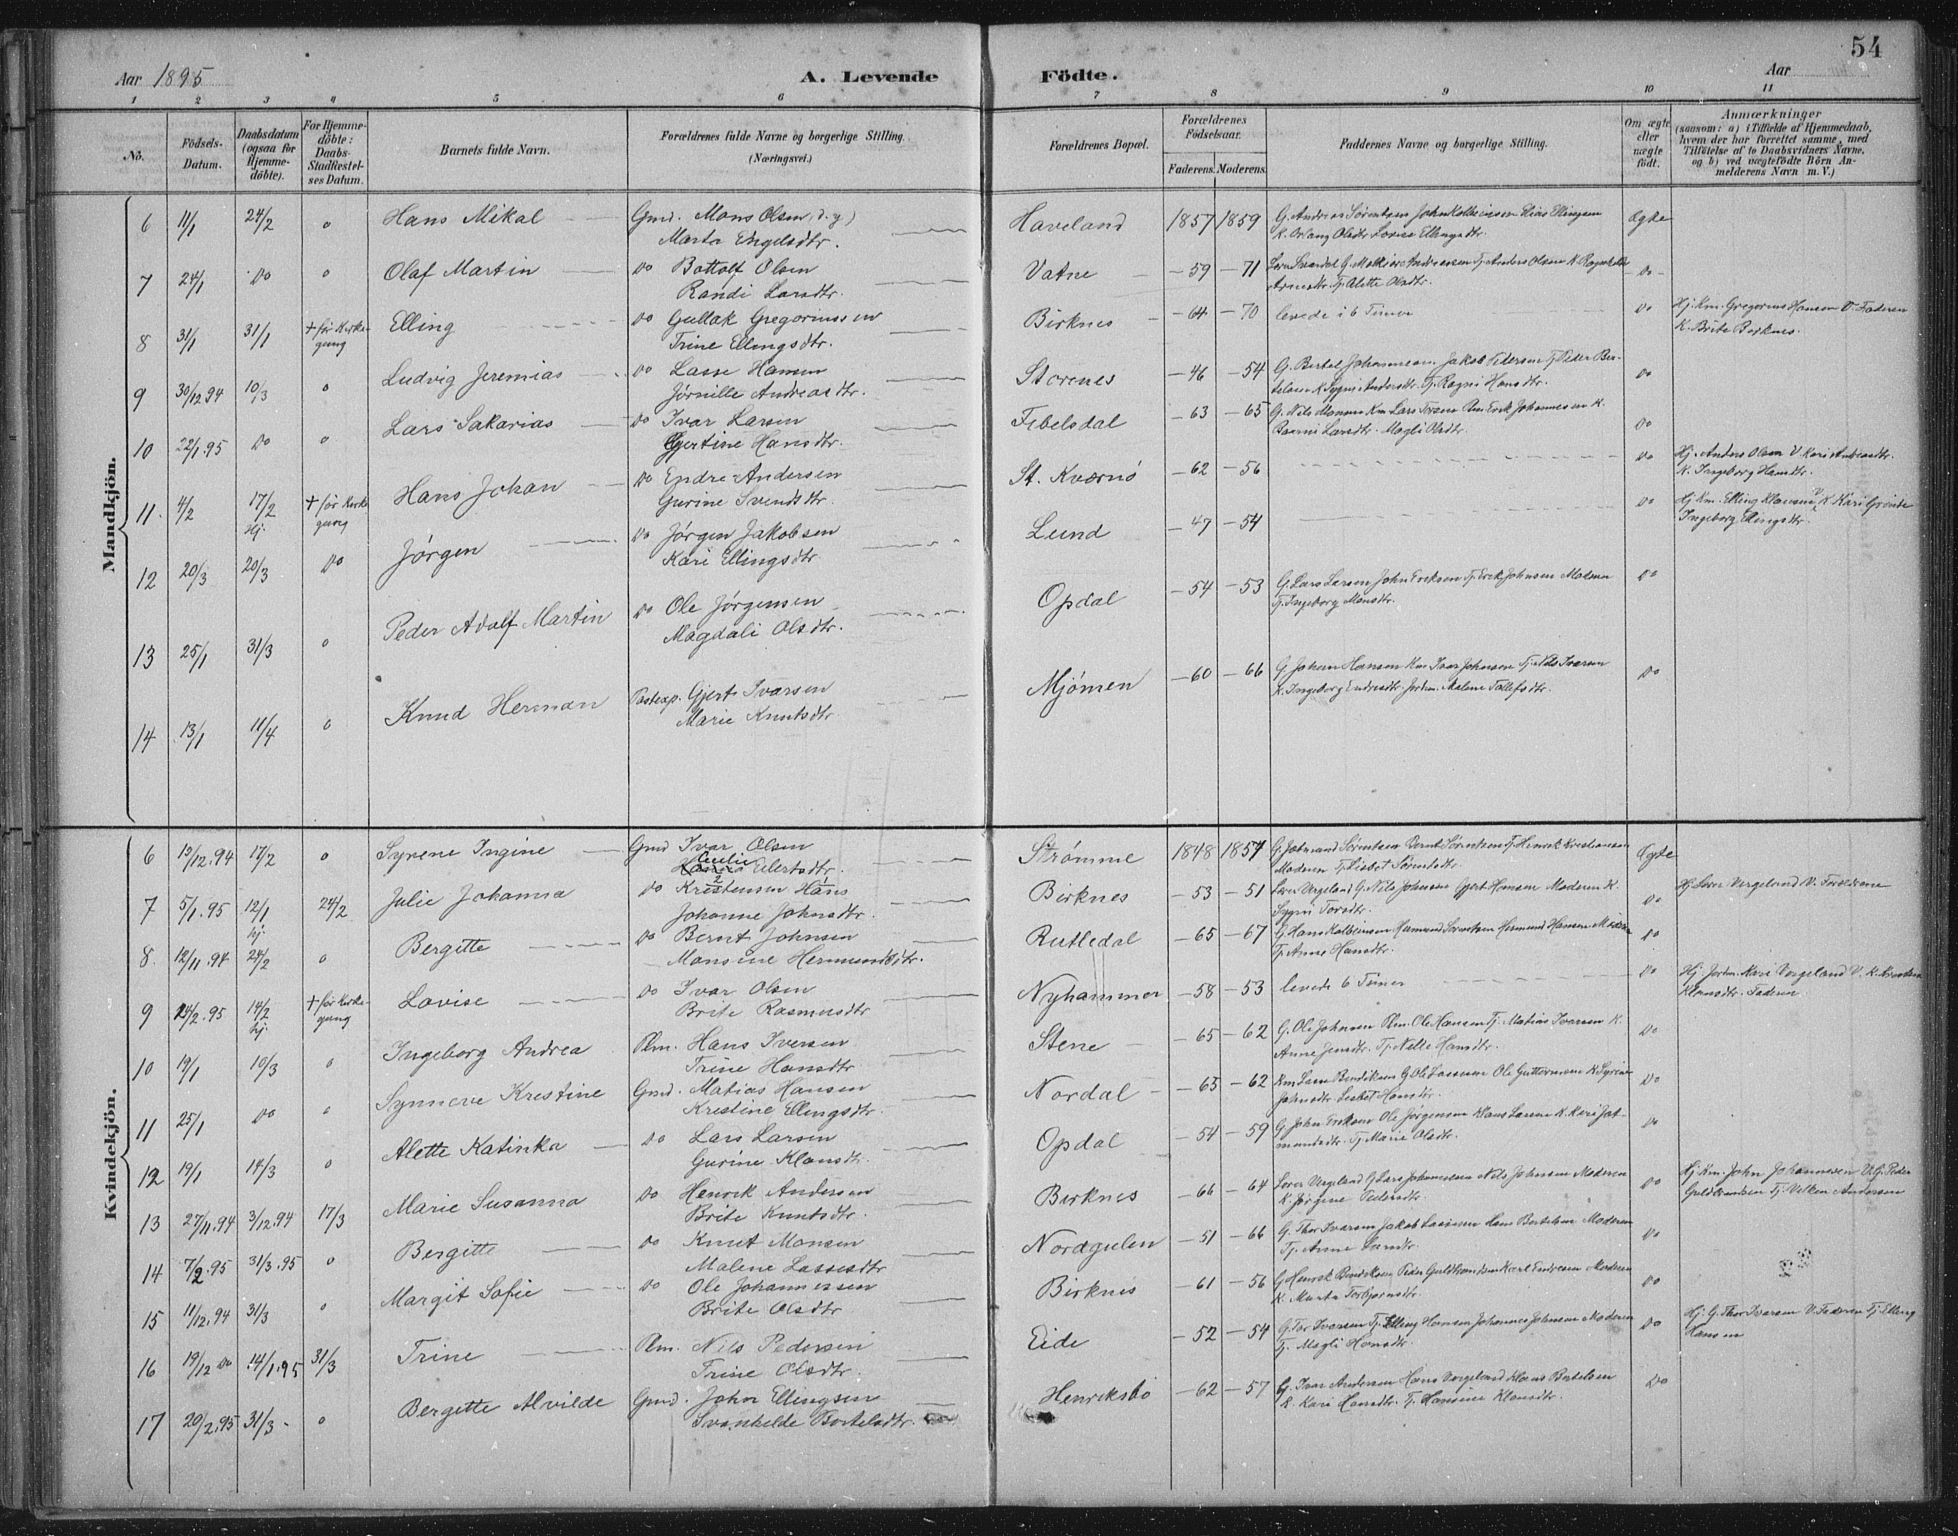 54
Aar 1895 A. Levende Födte. Aar
1 2 3 4 5 6 7 8 9 10 11
No.
Födsels-Datum.
Daabsdatum (ogsaa for Hjemmedöbte).
For Hjemmedöbte: Daabs-Stadfæstelses Datum.
Barnets fulde Navn.
Forældrenes fulde Navne og borgerlige Stilling. (Næringsvei.)
Forældrenes Bopæl.
Forældrenes Födselsaar.
Faderens. Moderens.
Faddernes Navne og borgerlige Stilling.
Om ægte eller uægte födt.
Anmærkninger
(saasom: a) i Tilfælde af Hjemmedaab, hvem der har forrettet samme, med Tilföielse af to Daabsvidners Navne, og b) ved uægtefödte Börn Anmelderens Navn m. V.)
Mandkjön.
6 11/1 24/2 o Hans Mikal Gmd. Mons Olsen (d.y.) Haveland 1857 1859 Ægte
Marta Engelsdtr.
7 24/1 Do o Olaf Martin Do Bottolf Olsen Vatne —59 —71 Do
Randi Larsdtr.
8 31/1 31/1 + før Kirkegang Elling Do Gullak Gregoriussen Birknes —64 —70 levede i 6 Timer Do Hj. Km. Gregorius Hansen V. Faderen
Trine Ellingsdtr. K. Brite Birknes.
9 30/12 94 10/3 o Ludvig Jeremias Do Lasse Hansen Storenes —46 —54 G. Bertel Johannesen Jakob Pedersen Tj. Peder Ber- Do
Jørnille Andreasdtr. telsen K. Sygni Andersdtr. Tj. Ragni Hansdtr.
10 22/1.95 Do o Lars Sakarias Do Ivar Larsen Fibelsdal —63 —65 Do
Gjertine Hansdtr. Larsdtr. Magli Olsdtr.
11. 4/2 17/2 Hj. + før Kirkegang Hans Johan Do Endre Andersen St. Kværnø —62 —56 Do Hj. Anders Olsen V. Kari Andreasdtr.
Gurine Svendsdtr. K. Ingeborg Hansdtr.
12 20/3 20/3 Do Jørgen Do Jørgen Jakobsen Lund —47 —54 Do Hj. Km. Elling Klausen V. K. Kari
Kari Ellingsdtr. Ingeborg Ellingsdtr.
13 25/1 31/3 o Peder Adolf Martin Do Ole Jørgensen Opdal —54 —53 G. Lars Larsen John Eriksen Tj. Erik Johnsen Moderen Do
Magdali Olsdtr. Tj. Ingeborg Monsdtr.
14 13/1 11/4 o Knud Herman Postexp. Gjert Ivarsen Mjömen —60 —66 G. Johan Hansen Km Ivar Johnsen Tj. Nils Ivarsen Do
Marie Knutsdtr K. Ingeborg Endresdtr. Jordm. Malene Tollefsdtr.
Kvindekjön.
6 13/12.94 17/2 o Syrene Ingine Gmd Ivar Olsen Strømme 1848 1857 Ægte
Cecilie Eilertsdtr. Moderen Tj. Lisbet Sørensdtr.
7 5/1.95 12/1 hj. 24/2 Julie Johanna Do Kristensen Hans Birknes —53 —51 Lærer Vergeland G. Nils Johnsen Gjert Hansen Moderen K. Do Hj. Lærer Vergeland V. Forældrene
Johanne Johnsdtr. Sygni Torsdtr.
8. 12/11.94 24/2 o Bergitte Do Bernt Johnsen Rutledal —65 —67 Do
Monsine Hermundsdtr. Tj. Anne Hansdtr.
9 14/2.95 14/2 hj. + før Kirkegang Lovise Do Ivar Olsen Nyhammer —58 —53 levede 6 Timer Do Hj. Jordm. Kari Vergeland V. K.
Brite Rasmusdtr Klausdtr. Faderen
10 19/1 10/3 o Ingeborg Andrea Plm. Hans Iversen Stene —65 —62 G. Ole Johnsen Plm. Ole Hansen Tj. Matias Ivarsen K. Do
Trine Hansdtr Anne Jensdtr. Tj. Nelle Hansdtr.
11 25/1 Do o Synneve Kristine Gmd. Matias Hansen Nordal —65 —62 Do
Kristine Ellingsdtr. Johnsdtr Lisbet Hansdtr.
12 19/1 14/3 o Alette Katinka Do Lars Larsen Opdal —54 —59 G. John Eriksen Ole Jørgensen Klaus Larsen K. Kari Jet- Do
Gurine Klausdtr. mundsdtr. Tj. Marie Olsdtr.
13 27/11.94 3/12.94 17/3 Marie Susanna Do Henrik Andersen Birknes —66 —64 Lærer Vergeland G. Lars Johannessen Nils Johnsen Moderen Do Hj. Km. John Johannesen V. G. Peder
Brite Knutsdtr. K. Jørgine Pedersdtr. Guldbrandsen Tj. Velken Andersen
14 7/2.95 31/3.95 o Bergitte Do Knut Monsen Nordgulen —51 —66 G. Thor Ivarsen Jakob Lassesen Hans Bertelsen Moderen Do
Malene Lassesdtr Tj. Anne Larsdtr.
15 11/12.94 31/3 o Margit Sofie Do Ole Johannessen Birknes —61 —56 G. Henrik Bendiksen Peder Guldbrandsen Karl Endresen Moderen Do
Brite Olsdtr K. Marta Torbjørnsdtr.
16 19/12 Do 14/1.95 31/3 Trine Plm. Nils Pedersen Eide —52 —54 G. Tor Ivarsen Tj. Elling Hansen Johannes Johnsen Moderen Do Hj. G. Thor Ivarsen V. Faderen Tj. Elling
Trine Olsdtr Tj. Magli Hansdtr. Hansen
17 20/2.95 31/3 o Bergitte Alvilde Gmd. John Ellingsen Henriksbø —62 —57 G. Ivar Andersen Hans Vergeland Klaus Bertelsen Do
Svanhilde Bertelsdtr. K. Kari Hansdtr. Tj. Hansine Klausdtr.